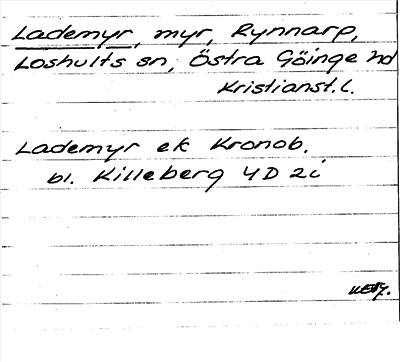 Lademyr, myr, Rynnarp,
Loshults sn, Östra Göinge hd
Kristianst. l.
Lademyr ek Kronob.
bl. Killeberg 4D 2i